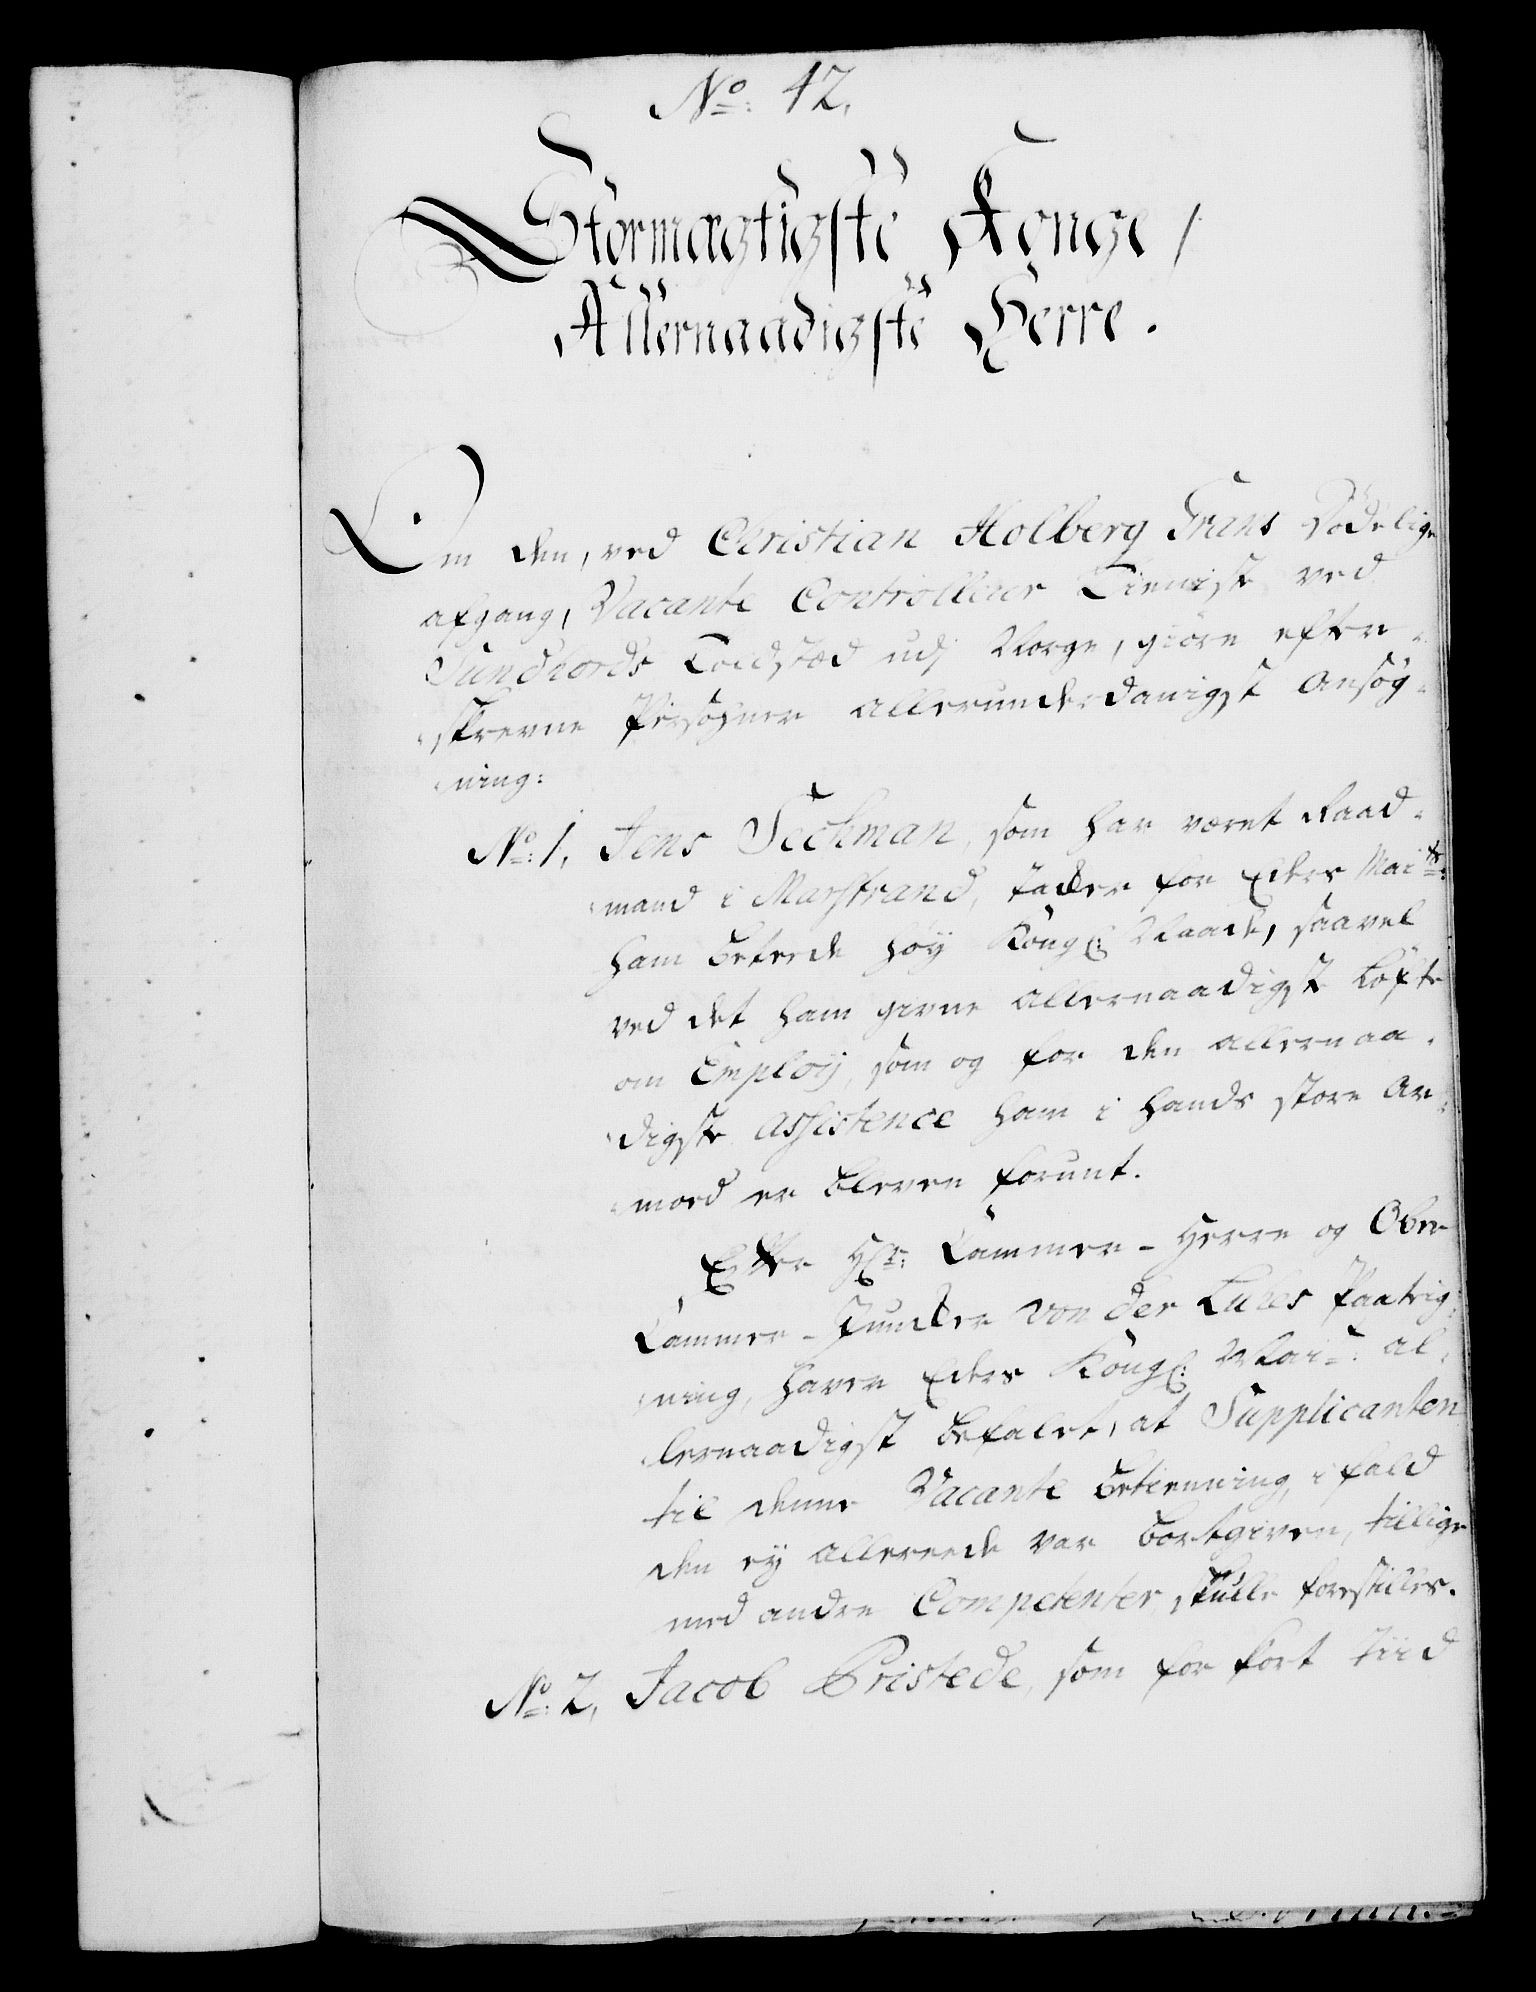 No: 42,
Stormægtigste Konge /
Allernaadigste Herre.
Om den, ved Christian Holberg Frans dödelige
afgang, Vacante Controlleur Tieniste ved
Sundfiords Toldsted udj Norge, giöre efter-
skrevne Persohner allerunderdanigst Ansög-
ning:
No: 1, Jens Sechman, som har været Raad-
mand i Marstrand, takker for Eders Maits:
ham beteede höy Kongl: Naade, saavel
ved det ham givne allernaadigst Löfte
om Employ, som og for den allernaa-
digste Assistence ham i hands store Ar-
mod er bleven forunt.
Efter Hr: Cammer-Herre og Ober
Cammer-Junker von der Lühes Paateig-
ning, haver Eders Kongl: Mait: al-
lernaadigst befalet, at Supplicanten
til denne Vacante betienning, ifald
den ey allereede var bortgiven, tillige
med andre Competenter skulle forestilles.
No: 2, Jacob Bristede, som for kort tiid